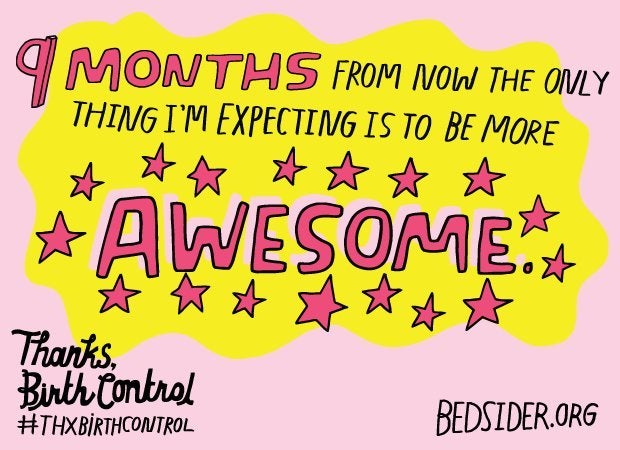 9 MONTHS FROM NOW THE ONLY
THING I'M EXPECTING IS TO BE MORE
AWESOME.
Thanks,
Birth Control
#THXBIRTHCONTROL
BEDSIDER.ORG